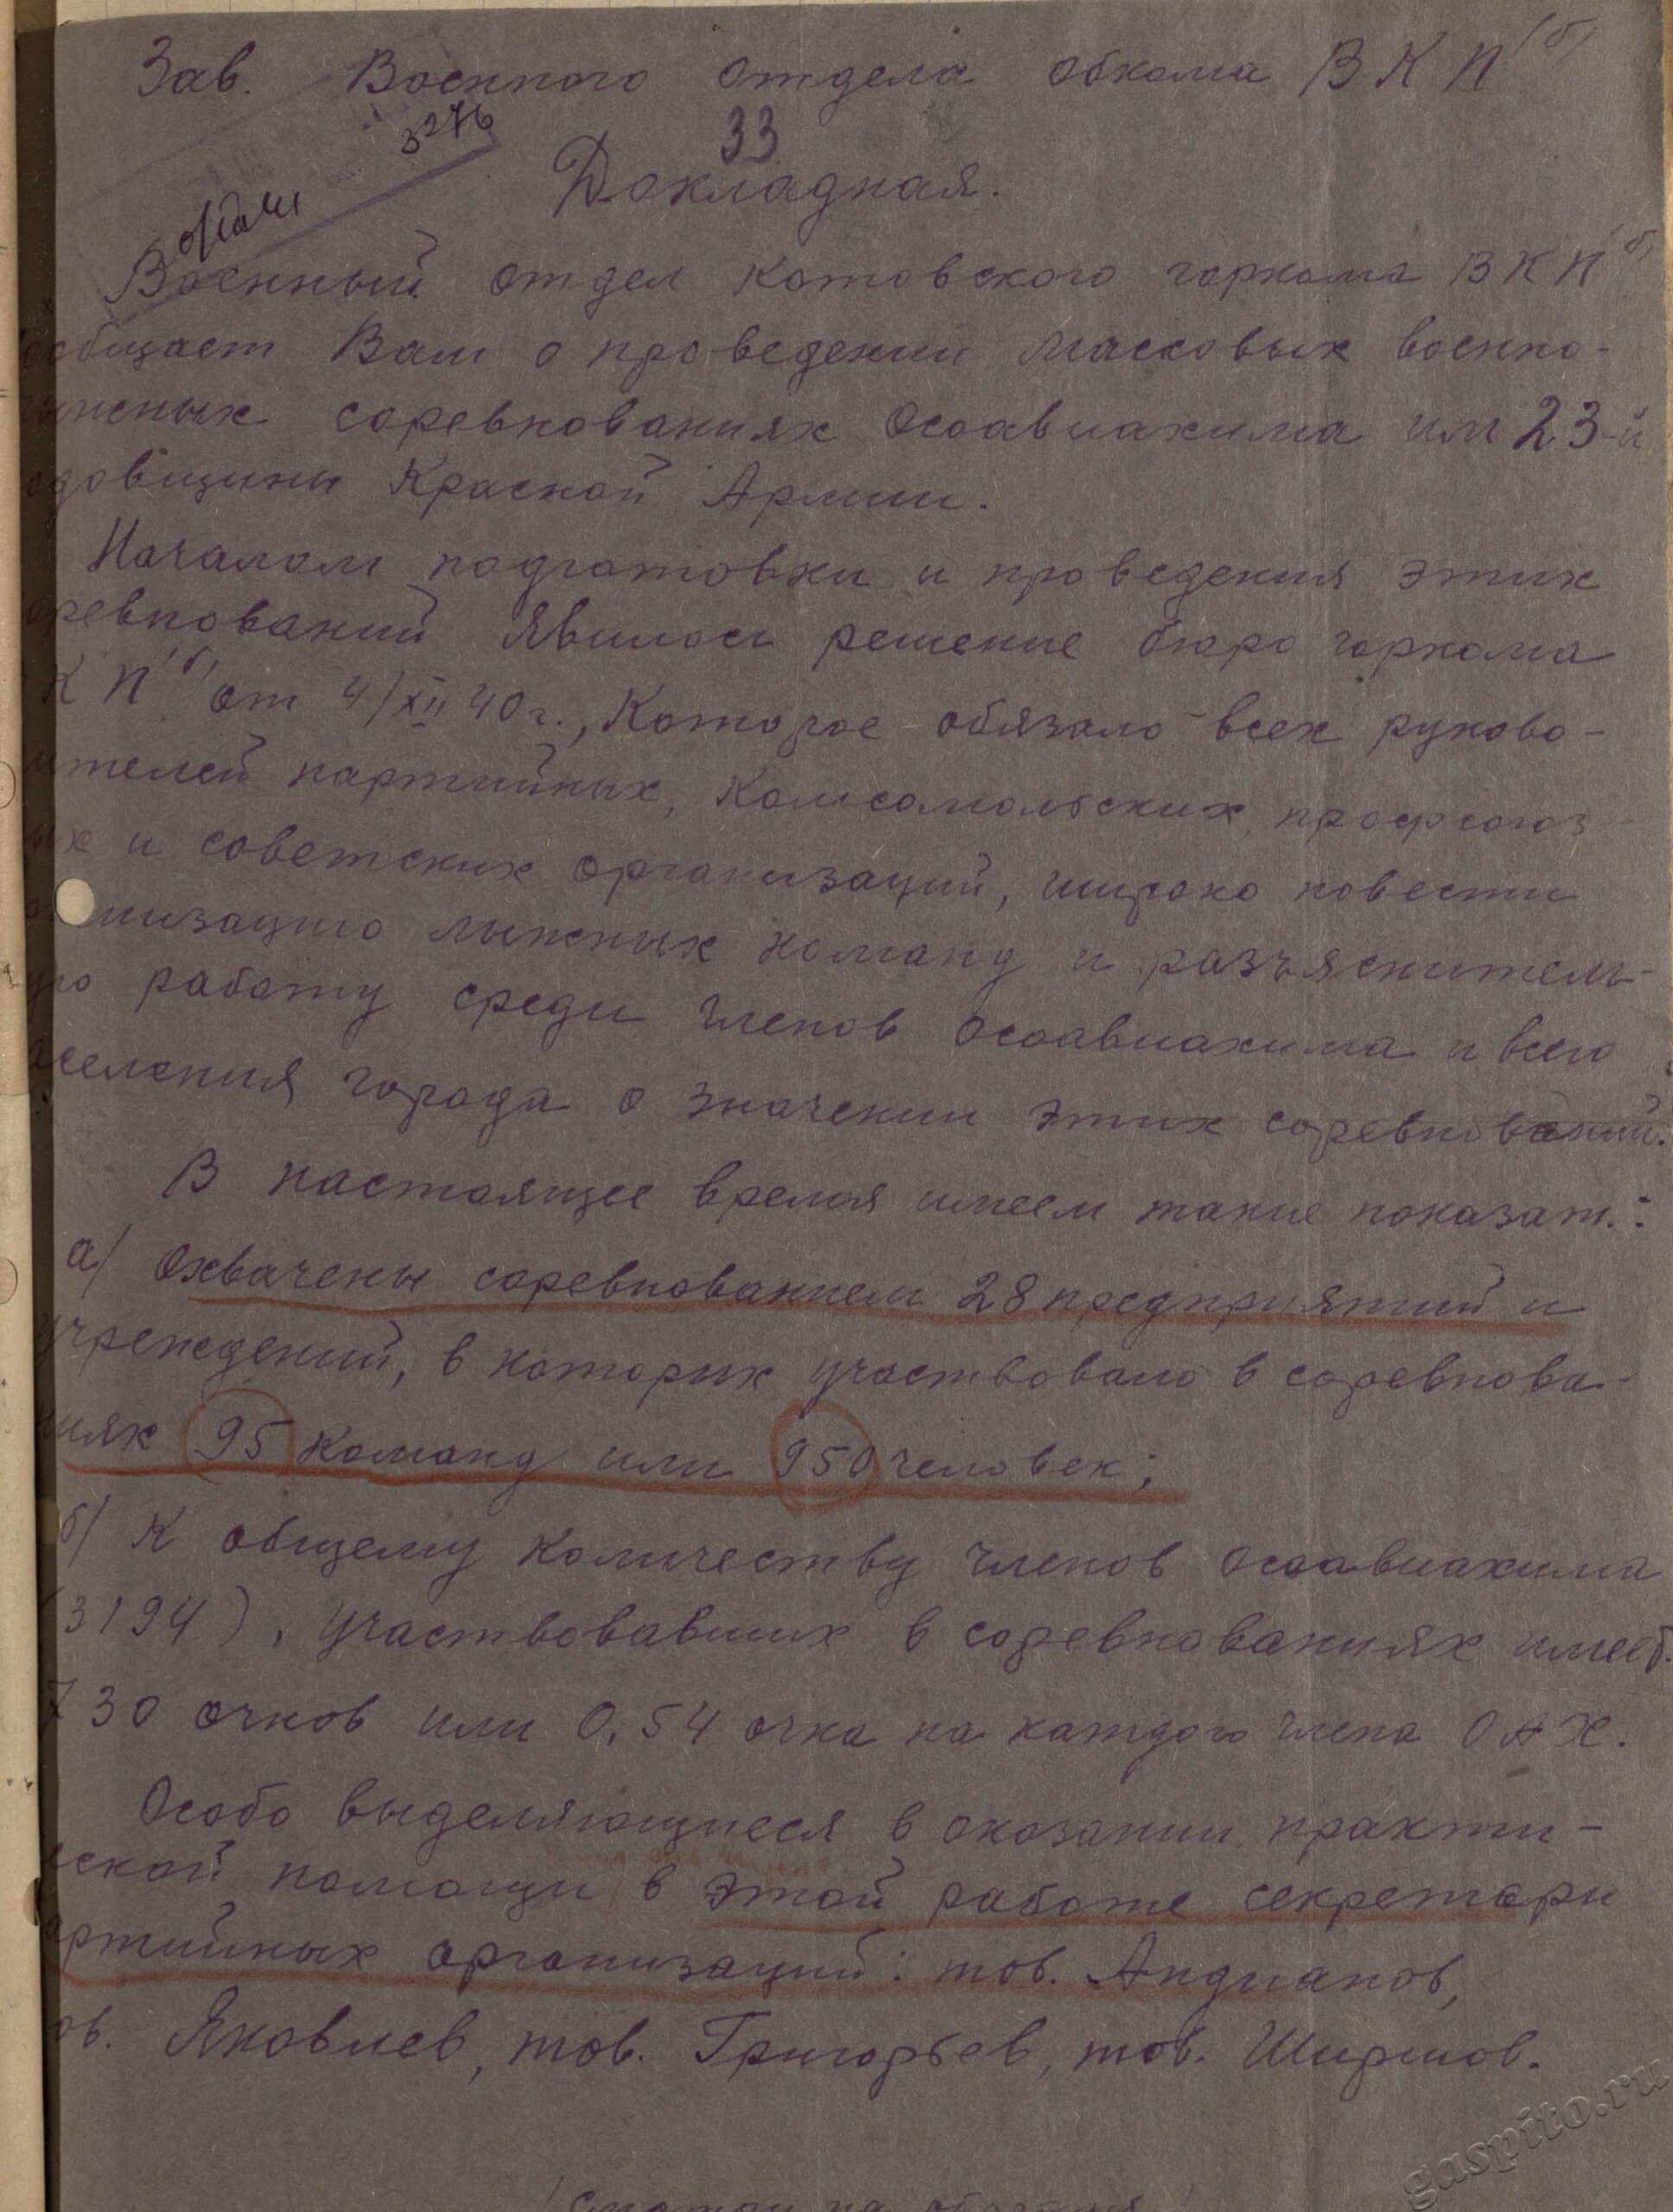 Зав. Военного отдела обкома ВКП(б)
3276
33
Докладная.
Военный отдел Котовского горкома ВКП(б)
ообщает Вам о проведении массовых военно-
ыжных соревнованиях Осоавиахима им 23-й
одовщины Красной Армии.
Началом подготовки и проведения этих
оревнований явилось решение бюро горкома
КП(б) от 4/XII 40 г., Которое обязало всех руково-
ителей партийных, Комсомольских, профсоюз-
ых и советских организаций, широко повести
низацию лыжных команд и разъяснитель-
ую работу среди членов Осоавиахима и всего
аселения города о значении этих соревнований.
В настоящее время имеем такие показат.:
а/ Охвачены соревнованием 28 предприятий и
учреждений, в которых участвовало в соревнова-
ниях 95 команд или 950 человек;
б/ К общему количеству членов Осоавиахима
(3194), участвовавших в соревнованиях имеет.
730 очков или 0,54 очка на каждого члена ОАХ.
Особо выделяющиеся в оказании практи-
еской помощи в этой работе секретари
артийных организаций: тов. Андианов,
ов. Яковлев, тов. Григорьев, тов. Ширшов.
(Смотри на обороте)
gaspito.ru